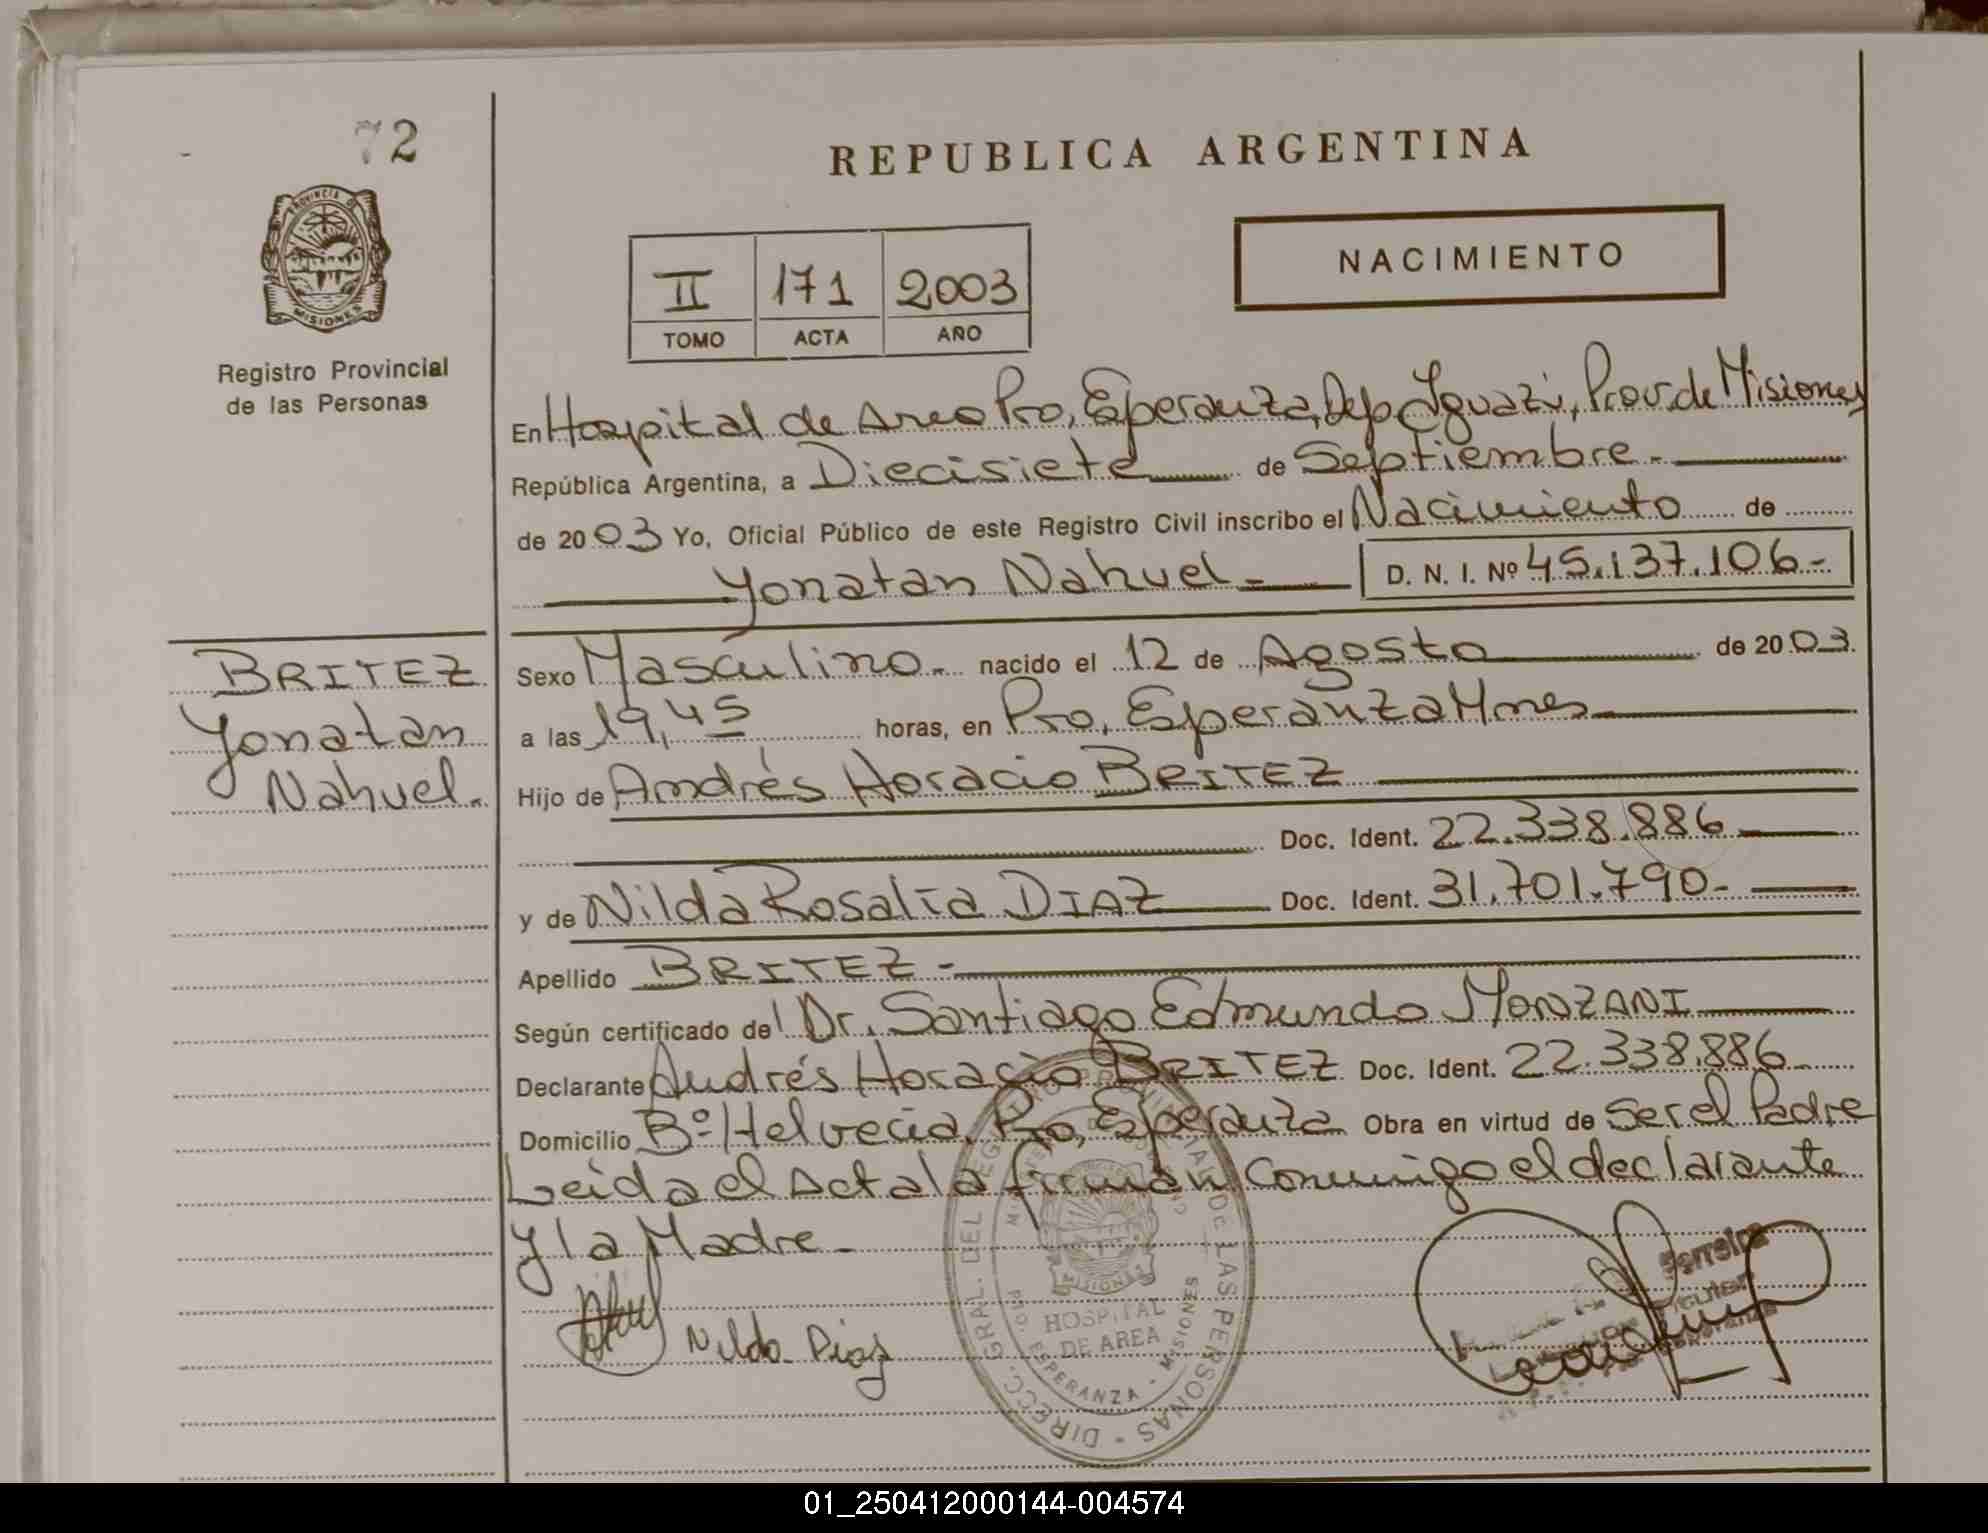 72
REPUBLICA ARGENTINA
PROVINCIA DE
MISIONES
Registro Provincial
de las Personas
II 171 2003
TOMO ACTA AÑO
NACIMIENTO
En Hospital de Area Pto, Esperanza, Dep Iguazú, Prov. de Misiones
República Argentina, a Diecisiete de Septiembre.
de 2003 Yo, Oficial Público de este Registro Civil inscribo el Nacimiento de
Yonatan Nahuel D. N. I. Nº 45.137.106-
BRITEZ
Yonatan
Nahuel.
Sexo Masculino nacido el 12 de Agosto de 2003.
a las 19,45 horas, en Pto, Esperanza Mnes
Hijo de Andrés Horacio BRITEZ
Doc. Ident. 22.338.886
y de Nilda Rosalia DIAZ Doc. Ident. 31.701.790-
Apellido BRITEZ-
Según certificado del Dr. Santiago Edmundo MONZANI
Declarante Andrés Horacio BRITEZ Doc. Ident. 22.338.886
Domicilio Bº Helvecia, Pto, Esperanza Obra en virtud de Ser el Padre
Leida el Acta la firman Conmigo el declarante
y la Madre-
Nilda Diaz
DIRECC. GRAL. DEL REGISTRO PROVINCIAL DE LAS PERSONAS
MISIONES
HOSPITAL
DE AREA
PTO. ESPERANZA - MISIONES
Ferreira
01_250412000144-004574